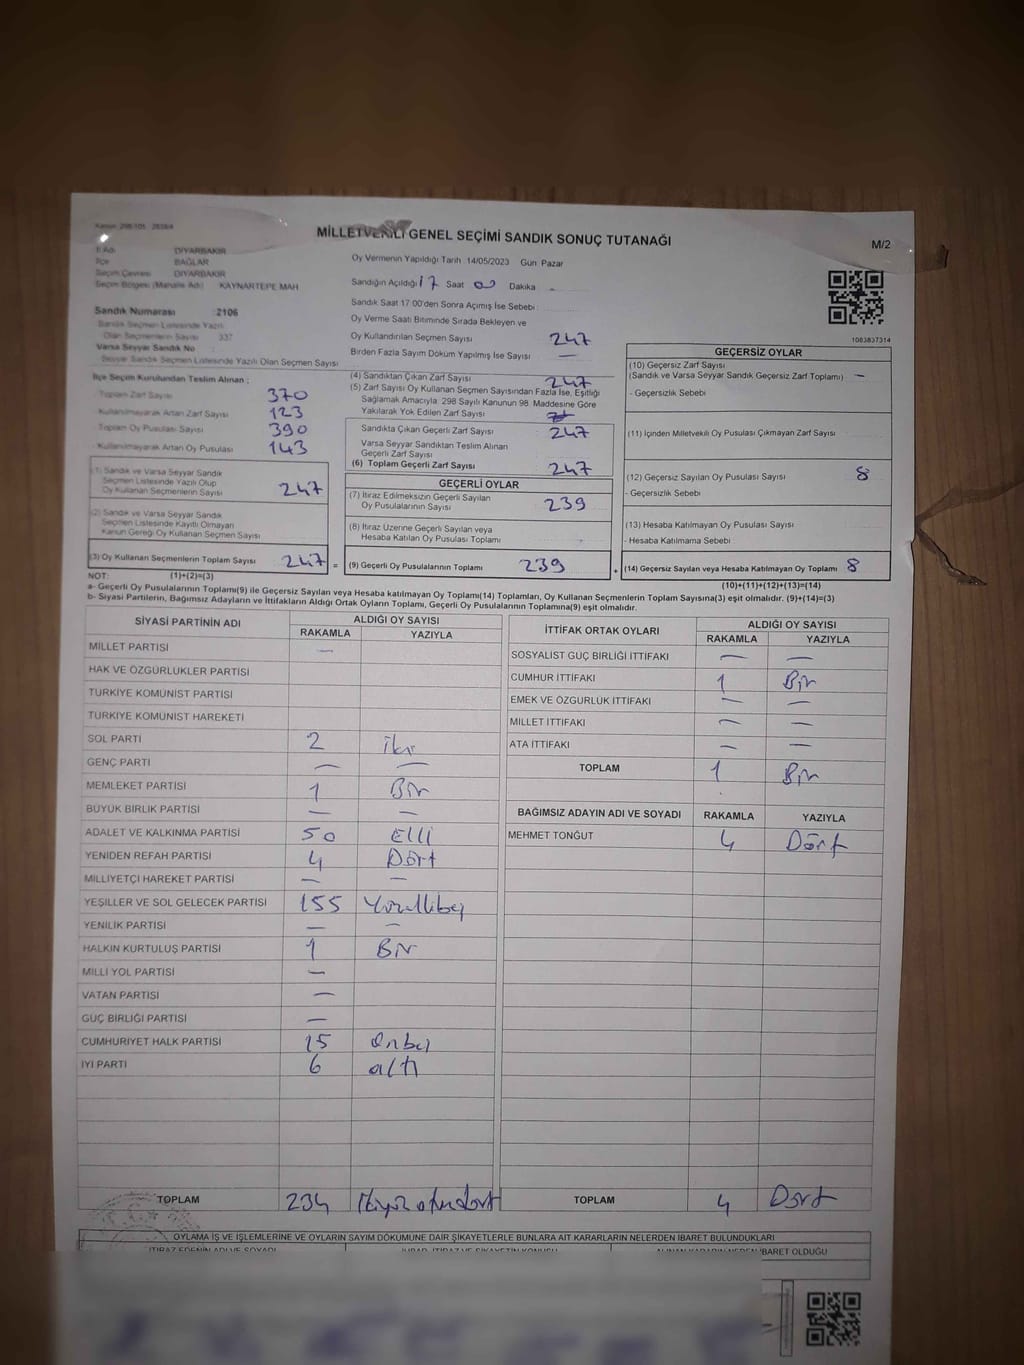 Kanun: 298/105 - 2839/4
MİLLETVEKİLİ GENEL SEÇİMİ SANDIK SONUÇ TUTANAĞI
M/2
İl Adı DİYARBAKIR
İlçe BAĞLAR
Seçim Çevresi DİYARBAKIR
Seçim Bölgesi (Mahalle Adı) KAYNARTEPE MAH
Sandık Numarası 2106
Sandık Seçmen Listesinde Yazılı
Olan Seçmenlerin Sayısı 337
Varsa Seyyar Sandık No
Seyyar Sandık Seçmen Listesinde Yazılı Olan Seçmen Sayısı
İlçe Seçim Kurulundan Teslim Alınan :
Toplam Zarf Sayısı 370
Kullanılmayarak Artan Zarf Sayısı 123
Toplam Oy Pusulası Sayısı 390
Kullanılmayarak Artan Oy Pusulası 143
(1) Sandık ve Varsa Seyyar Sandık
Seçmen Listesinde Yazılı Olup
Oy Kullanan Seçmenlerin Sayısı 247
(2) Sandık ve Varsa Seyyar Sandık
Seçmen Listesinde Kayıtlı Olmayan
Kanun Gereği Oy Kullanan Seçmen Sayısı
(3) Oy Kullanan Seçmenlerin Toplam Sayısı 247 =
Oy Vermenin Yapıldığı Tarih 14/05/2023 Gün Pazar
Sandığın Açıldığı 17 Saat 00 Dakika
Sandık Saat 17:00'den Sonra Açımış İse Sebebi :
Oy Verme Saati Bitiminde Sırada Bekleyen ve
Oy Kullandırılan Seçmen Sayısı 247
Birden Fazla Sayım Döküm Yapılmış İse Sayısı —
(4) Sandıktan Çıkan Zarf Sayısı 247
(5) Zarf Sayısı Oy Kullanan Seçmen Sayısından Fazla İse, Eşitliği
Sağlamak Amacıyla 298 Sayılı Kanunun 98. Maddesine Göre
Yakılarak Yok Edilen Zarf Sayısı
Sandıkta Çıkan Geçerli Zarf Sayısı 247
Varsa Seyyar Sandıktan Teslim Alınan
Geçerli Zarf Sayısı
(6) Toplam Geçerli Zarf Sayısı 247
GEÇERLİ OYLAR
(7) İtiraz Edilmeksizin Geçerli Sayılan
Oy Pusulalarının Sayısı 239
(8) İtiraz Üzerine Geçerli Sayılan veya
Hesaba Katılan Oy Pusulası Toplamı
(9) Geçerli Oy Pusulalarının Toplamı 239 +
1083837314
GEÇERSİZ OYLAR
(10) Geçersiz Zarf Sayısı
(Sandık ve Varsa Seyyar Sandık Geçersiz Zarf Toplamı) —
- Geçersizlik Sebebi
(11) İçinden Milletvekili Oy Pusulası Çıkmayan Zarf Sayısı
(12) Geçersiz Sayılan Oy Pusulası Sayısı 8
- Geçersizlik Sebebi
(13) Hesaba Katılmayan Oy Pusulası Sayısı
- Hesaba Katılmama Sebebi
(14) Geçersiz Sayılan veya Hesaba Katılmayan Oy Toplamı 8
NOT: (1)+(2)=(3) (10)+(11)+(12)+(13)=(14)
a- Geçerli Oy Pusulalarının Toplamı(9) ile Geçersiz Sayılan veya Hesaba katılmayan Oy Toplamı(14) Toplamları, Oy Kullanan Seçmenlerin Toplam Sayısına(3) eşit olmalıdır. (9)+(14)=(3)
b- Siyasi Partilerin, Bağımsız Adayların ve İttifakların Aldığı Ortak Oyların Toplamı, Geçerli Oy Pusulalarının Toplamına(9) eşit olmalıdır.
SİYASİ PARTİNİN ADI ALDIĞI OY SAYISI
RAKAMLA YAZIYLA
MİLLET PARTİSİ —
HAK VE ÖZGÜRLÜKLER PARTİSİ
TÜRKİYE KOMÜNİST PARTİSİ
TÜRKİYE KOMÜNİST HAREKETİ
SOL PARTİ 2 iki
GENÇ PARTİ — —
MEMLEKET PARTİSİ 1 Bir
BÜYÜK BİRLİK PARTİSİ — —
ADALET VE KALKINMA PARTİSİ 50 Elli
YENİDEN REFAH PARTİSİ 4 Dört
MİLLİYETÇİ HAREKET PARTİSİ — —
YEŞİLLER VE SOL GELECEK PARTİSİ 155 Yüzellibeş
YENİLİK PARTİSİ — —
HALKIN KURTULUŞ PARTİSİ 1 Bir
MİLLİ YOL PARTİSİ —
VATAN PARTİSİ —
GÜÇ BİRLİĞİ PARTİSİ —
CUMHURİYET HALK PARTİSİ 15 Onbeş
İYİ PARTİ 6 altı
TOPLAM 234 İkiyüz otuzdört
İTTİFAK ORTAK OYLARI ALDIĞI OY SAYISI
RAKAMLA YAZIYLA
SOSYALİST GÜÇ BİRLİĞİ İTTİFAKI — —
CUMHUR İTTİFAKI 1 Bir
EMEK VE ÖZGÜRLÜK İTTİFAKI — —
MİLLET İTTİFAKI — —
ATA İTTİFAKI — —
TOPLAM 1 Bir
BAĞIMSIZ ADAYIN ADI VE SOYADI RAKAMLA YAZIYLA
MEHMET TONĞUT 4 Dört
TOPLAM 4 Dört
OYLAMA İŞ VE İŞLEMLERİNE VE OYLARIN SAYIM DÖKÜMÜNE DAİR ŞİKAYETLERLE BUNLARA AİT KARARLARIN NELERDEN İBARET BULUNDUKLARI